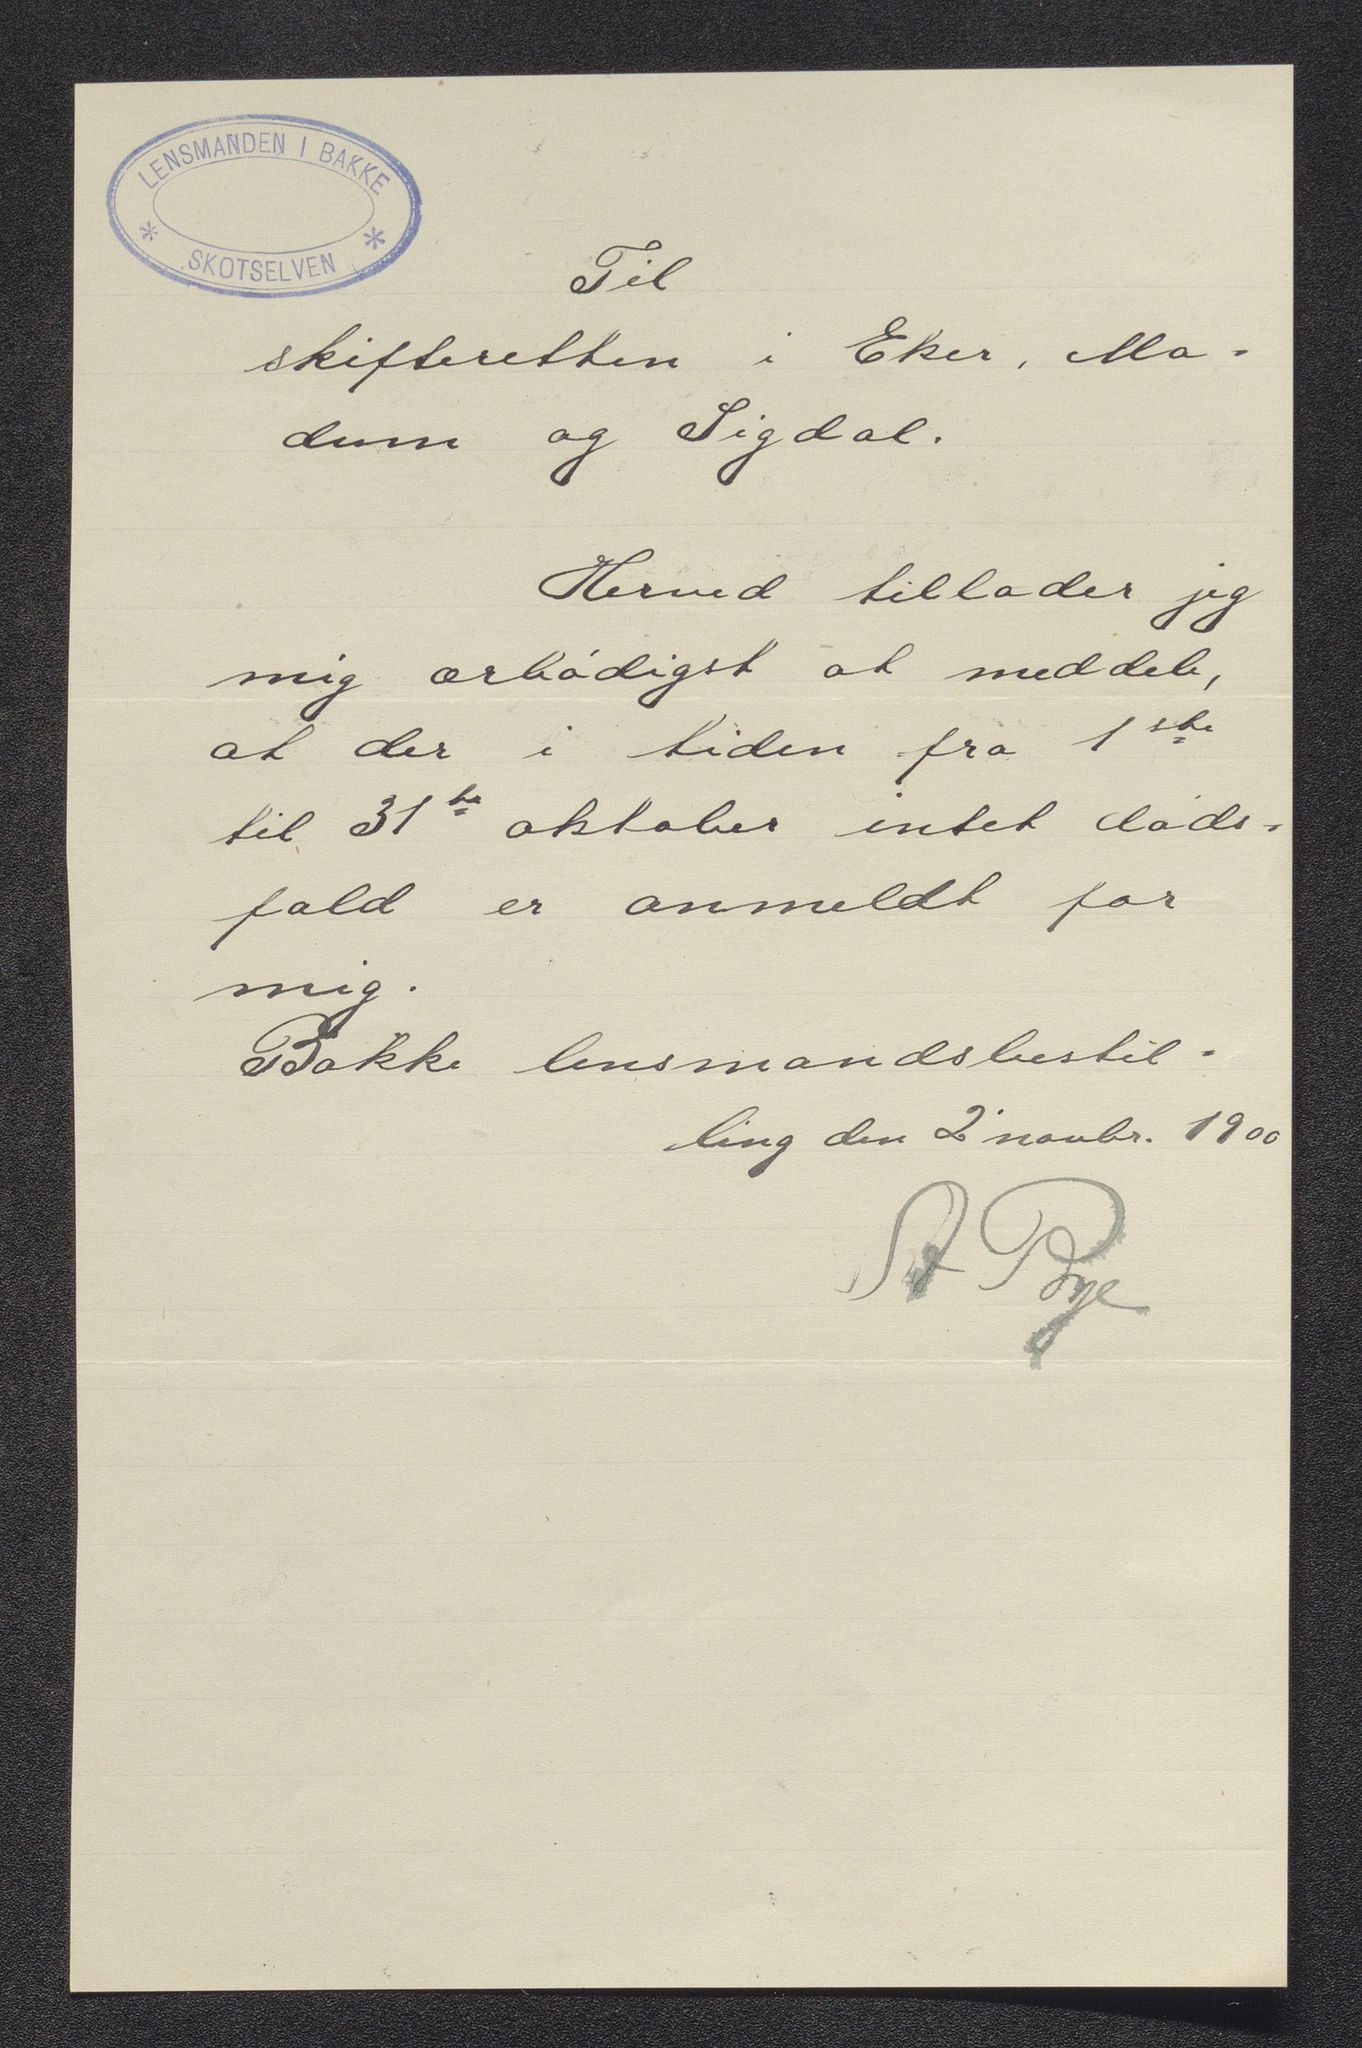 LENSMANDEN I BAKKE
* SKOTSELVEN *
Til
skifteretten i Eker, Mo-
dum og Sigdal.
Herved tillader jeg
mig ærbødigst at meddele,
at der i tiden fra 1ste
til 31te oktober intet døds-
fald er anmeldt for
mig.
Bakke lensmandsbestil-
ling den 2' novbr. 1900
Bye